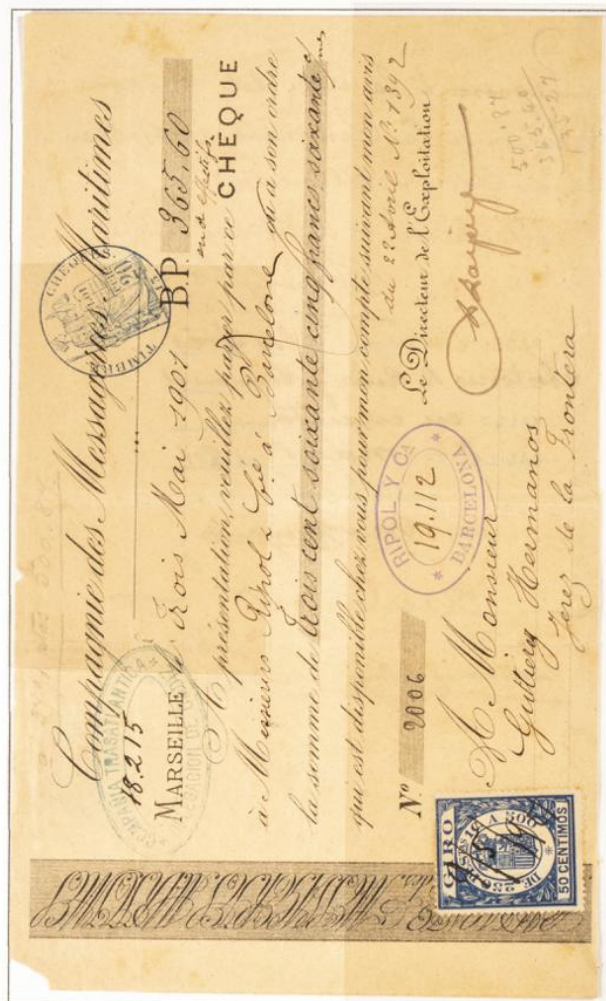 Compagnie des Messageries Maritimes
18.215
COMPAÑIA TRASATLANTICA
CHEQUES
TIMBRE
MARSEILLE le Trois Mai 1901 B.P. 365,60
A présentation, veuillez payer par ce CHÈQUE
à Messieurs Ripol & Cie à Barcelone ou à son ordre
la somme de trois cent soixante cinq francs soixante cmes
qui est disponible chez vous pour mon compte suivant mon avis
du 22 Avril No 1392
No 2006
RIPOL Y CA
19.112
BARCELONA
Le Directeur de l'Exploitation
A Monsieur
Gutierrez Hermanos
Jerez de la Frontera
GIRO
DE 250 A 500
50 CENTIMOS
500,87
365,60
135,27